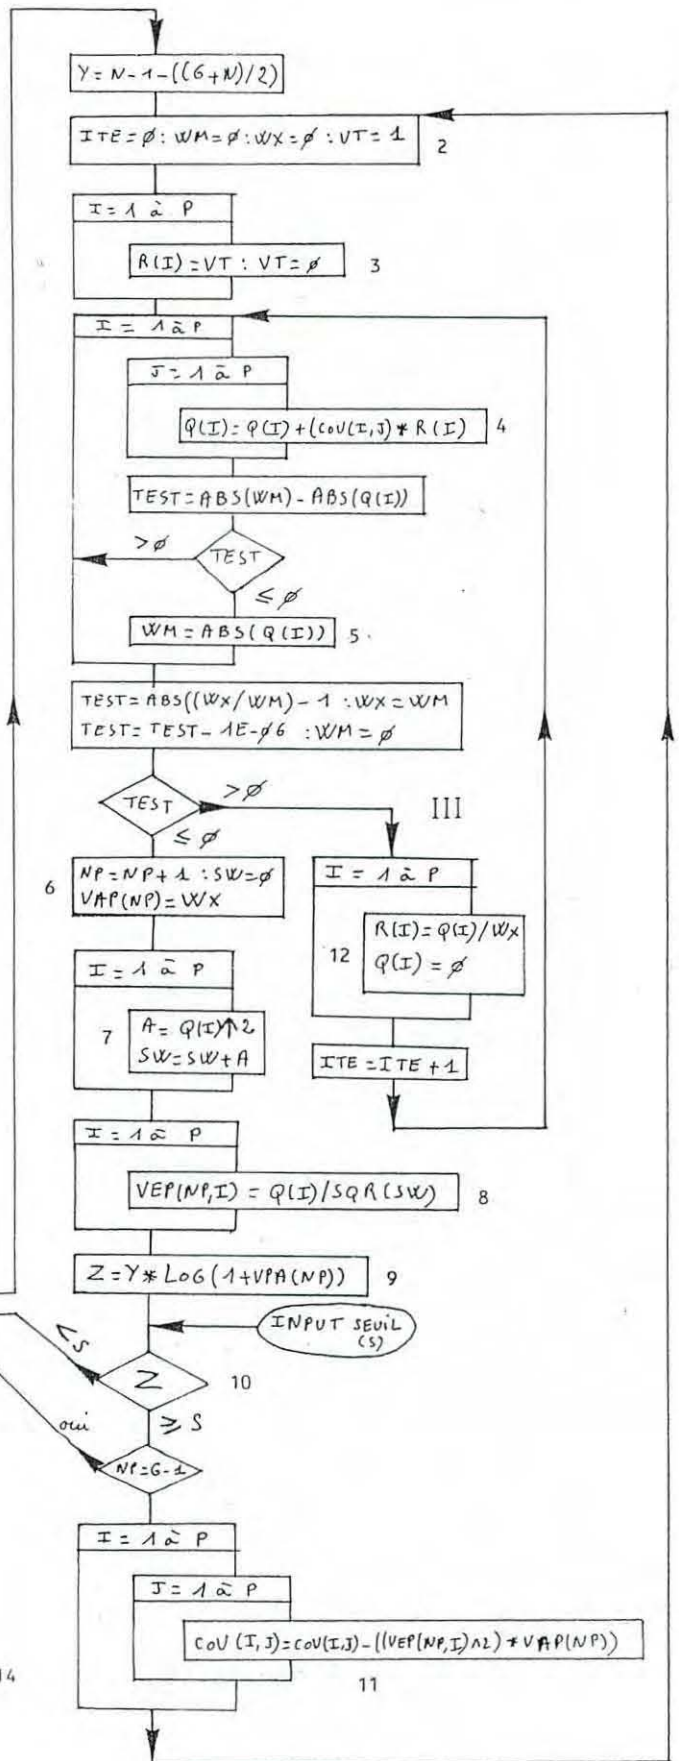 Y = N - 1 - ((G+N)/2)
ITE = ø : WM = ø : WX = ø : VT = 1
2
I = 1 à P
R(I) = VT : VT = ø
3
I = 1 à P
J = 1 à P
Q(I) = Q(I) + (COV(I,J) * R(I)
4
TEST = ABS(WM) - ABS(Q(I))
>ø
TEST
≤ ø
WM = ABS(Q(I))
5.
TEST = ABS((WX/WM) - 1 : WX = WM
TEST = TEST - 1E-ø6 : WM = ø
TEST
>ø
III
≤ ø
6
NP = NP + 1 : SW = ø
VAP(NP) = WX
I = 1 à P
12
R(I) = Q(I)/WX
Q(I) = ø
I = 1 à P
7
A = Q(I)↑2
SW = SW + A
ITE = ITE + 1
I = 1 à P
VEP(NP,I) = Q(I)/SQR(SW)
8
Z = Y * LOG(1+VPA(NP))
9
INPUT SEUIL
(S)
<S
Z
10
oui
≥ S
NP = G-1
I = 1 à P
J = 1 à P
COV(I,J) = COV(I,J) - ((VEP(NP,I)∧2) * VAP(NP))
14
11